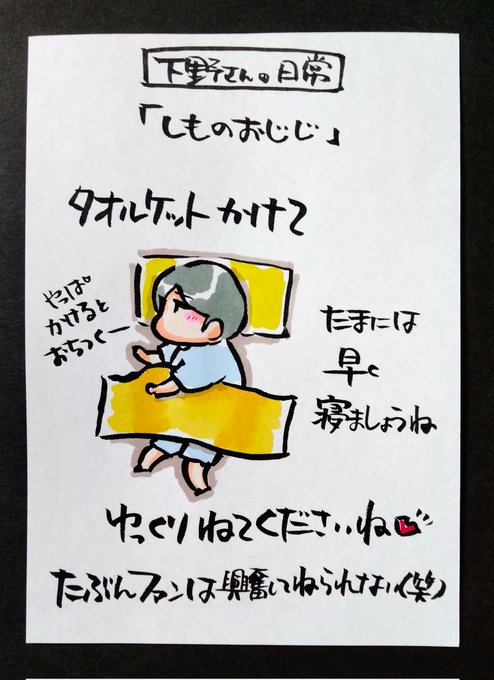 下野さんの日常
「しものおじじ」
タオルケットかけて
やっぱ
かけると
おちつくー
たまには
早く
寝ましょうね
ゆっくりねてくださいね
たぶんファンは興奮してねられない(笑)